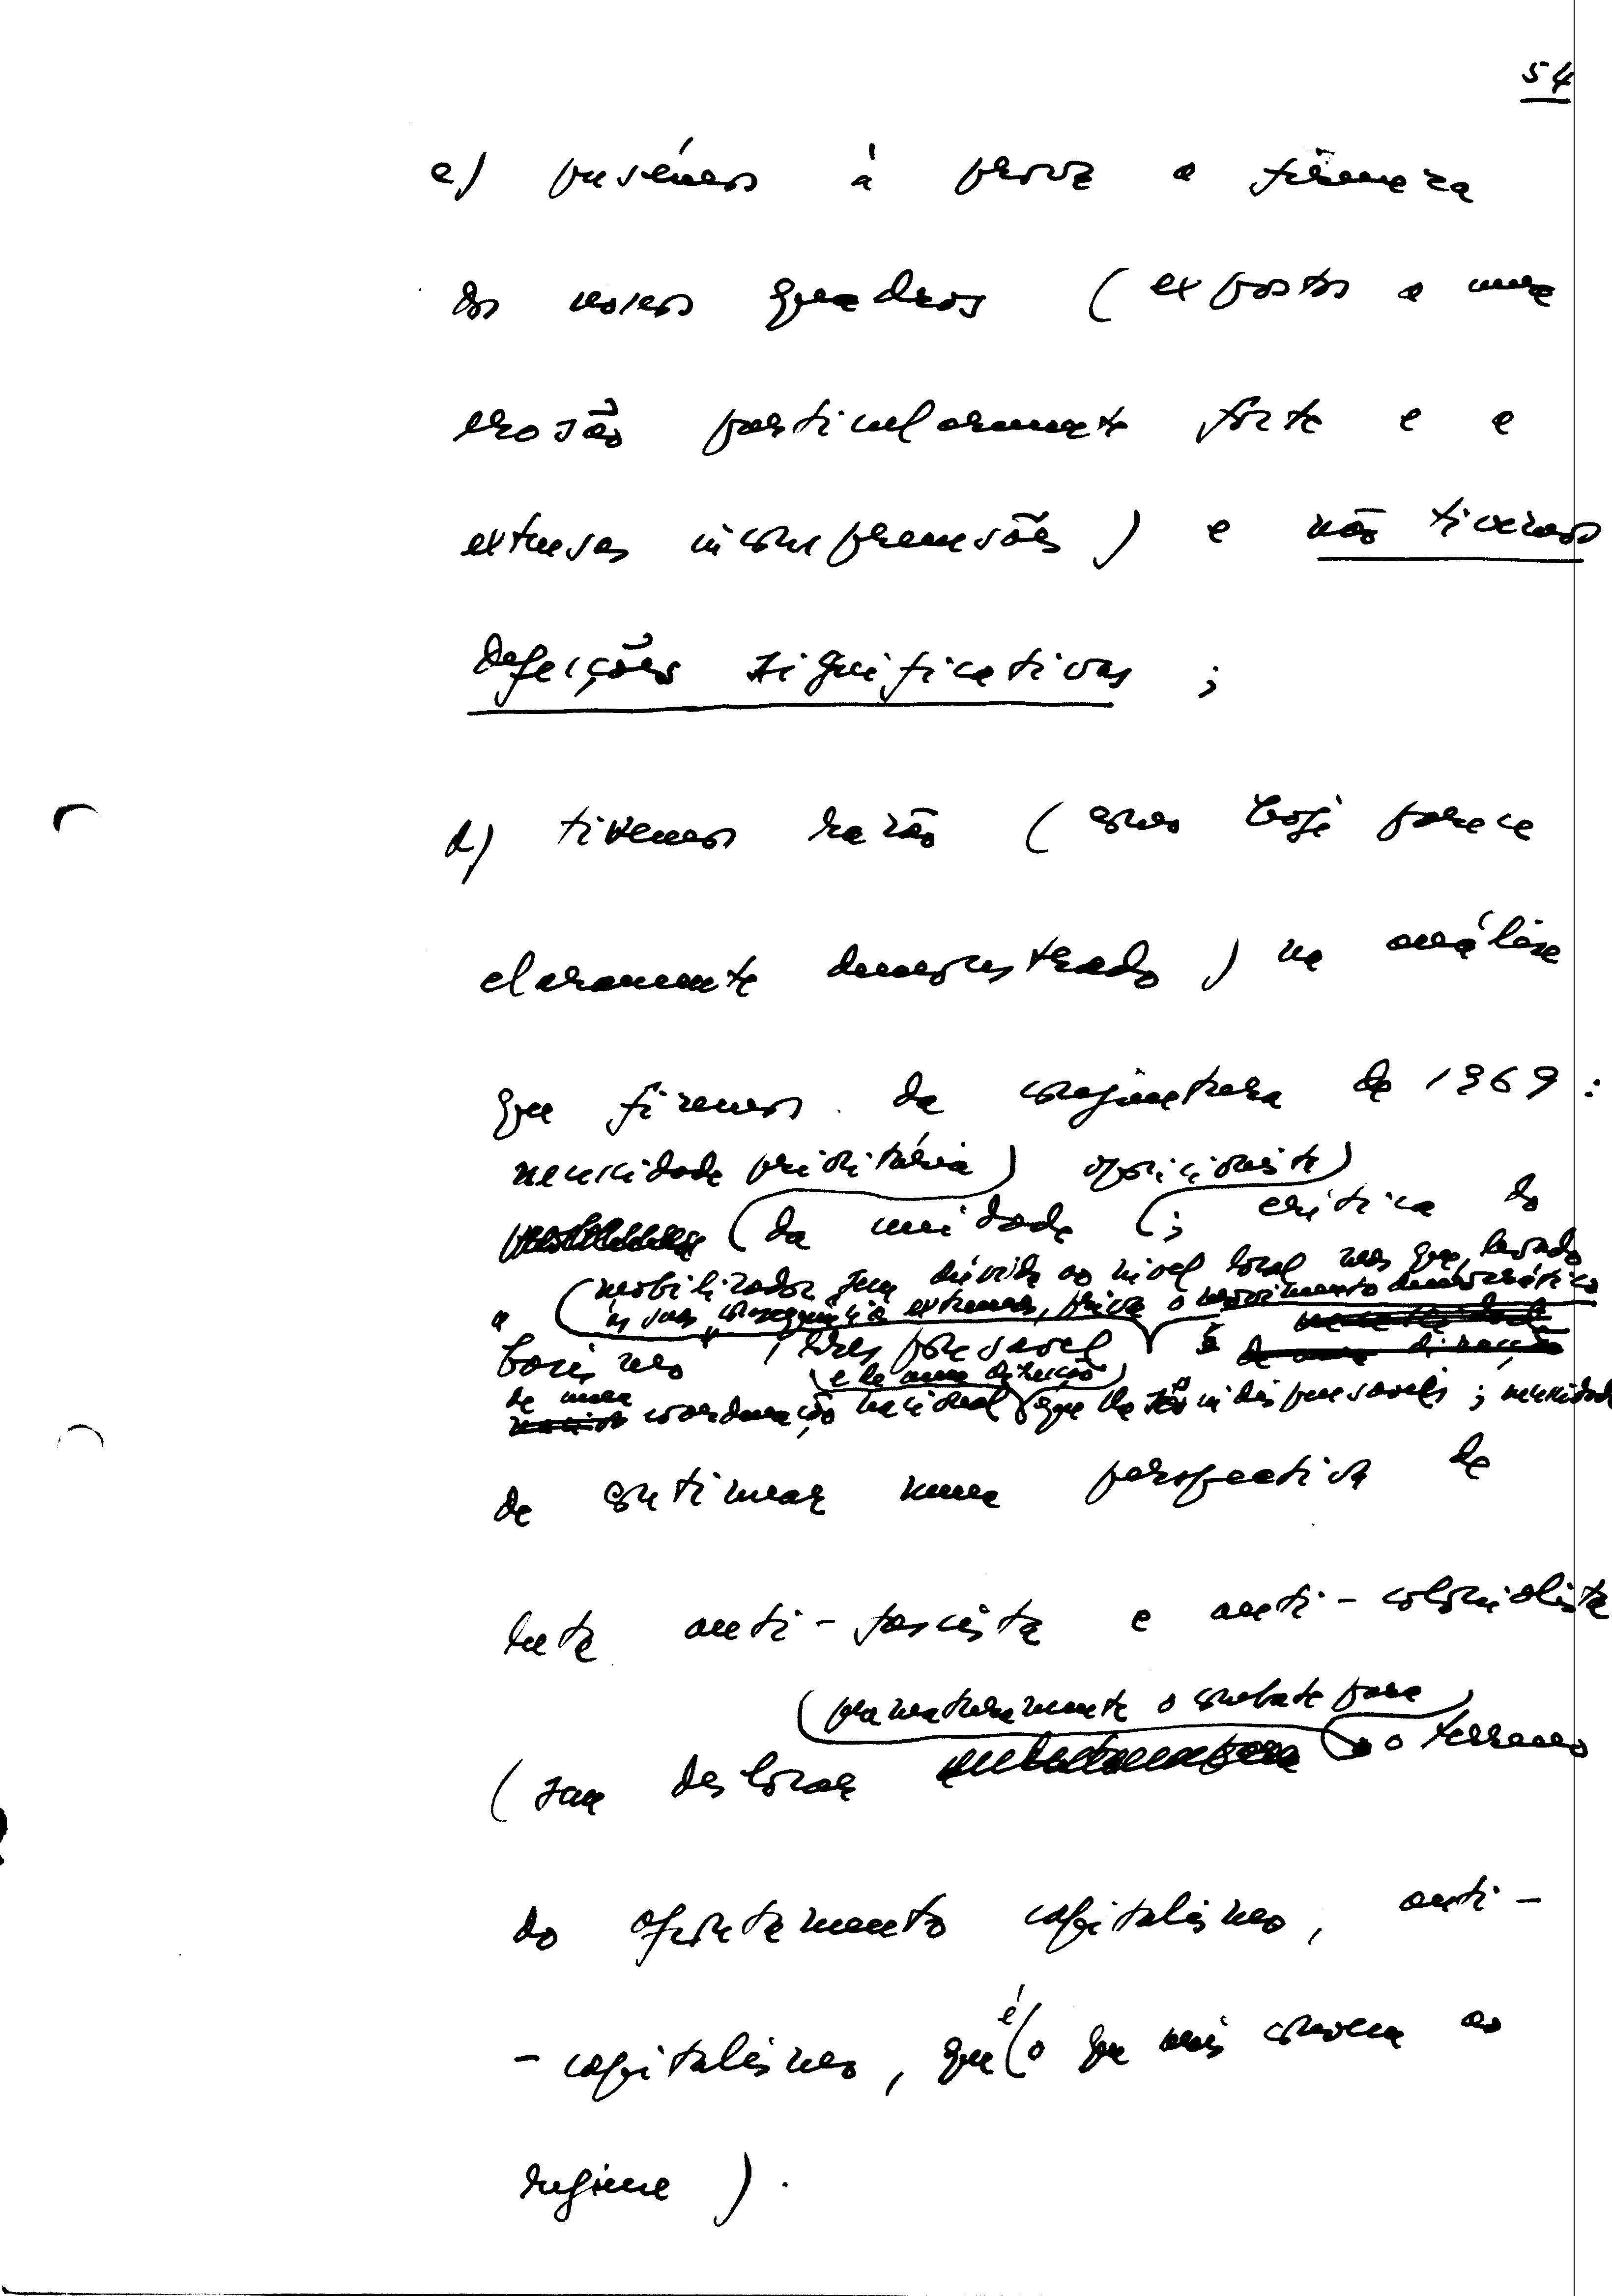 54
c) pusémos à prova a firmeza
dos nossos quadros (expostos a uma
erosão particularmente forte e a
extensas incompreensões) e não tivemos
defeições significativas;
d) tivemos razão (como hoje parece
claramente demonstrado) na análise
que fizemos da conjuntura de 1969:
necessidade prioritária oposicionista
da unidade; crítica do
mobilizador sem dúvida ao nível local mas que, levado
às suas consequências extremas, priva o movimento democrático
basismo
e de uma direcção
de uma coordenação nacional que lhe são indispensáveis; necessidade
de continuar numa perspectiva de
luta anti-fascista e anti-colonialista
prematuramente o combate para
(sem deslocar o terreno
do afrontamento capitalismo, anti-
é
-capitalismo, que o que mais convem ao
regime).